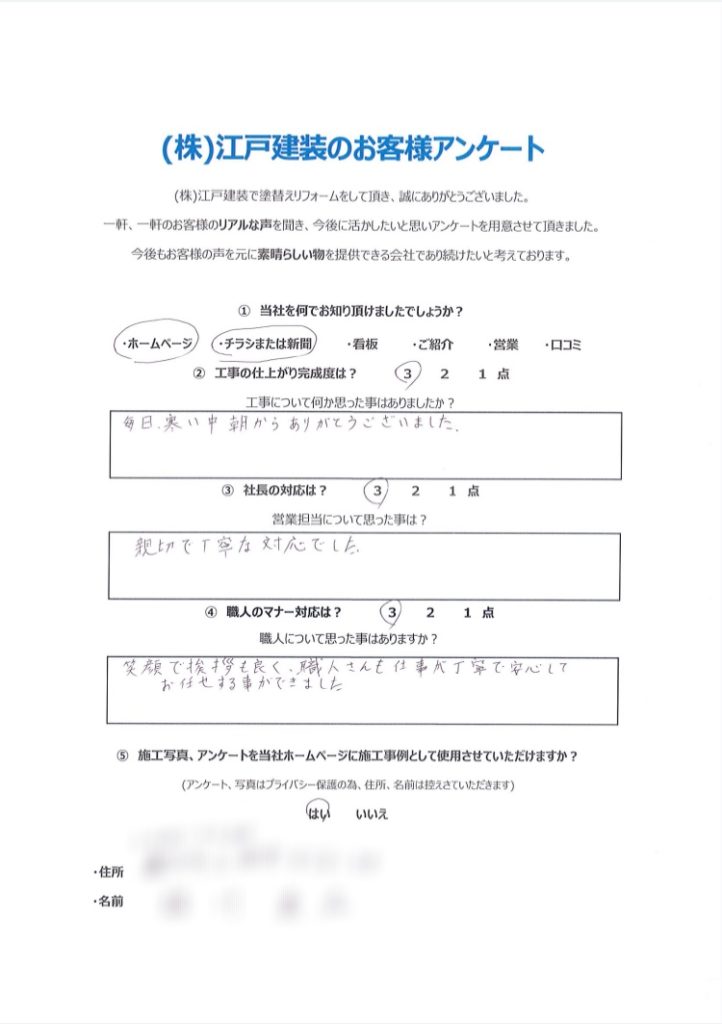 (株)江戸建装のお客様アンケート
(株)江戸建装で塗替えリフォームをして頂き、誠にありがとうございました。
一軒、一軒のお客様のリアルな声を聞き、今後に活かしたいと思いアンケートを用意させて頂きました。
今後もお客様の声を元に素晴らしい物を提供できる会社であり続けたいと考えております。
① 当社を何でお知り頂けましたでしょうか？
・ホームページ ・チラシまたは新聞 ・看板 ・ご紹介 ・営業 ・口コミ
② 工事の仕上がり完成度は？ 3 2 1 点
工事について何か思った事はありましたか？
毎日、寒い中朝からありがとうございました。
③ 社長の対応は？ 3 2 1 点
営業担当について思った事は？
親切で丁寧な対応でした。
④ 職人のマナー対応は？ 3 2 1 点
職人について思った事はありますか？
笑顔で挨拶も良く、職人さんも仕事が丁寧で安心して
お任せする事ができました
⑤ 施工写真、アンケートを当社ホームページに施工事例として使用させていただけますか？
(アンケート、写真はプライバシー保護の為、住所、名前は控えさていただきます)
はい いいえ
・住所
・名前